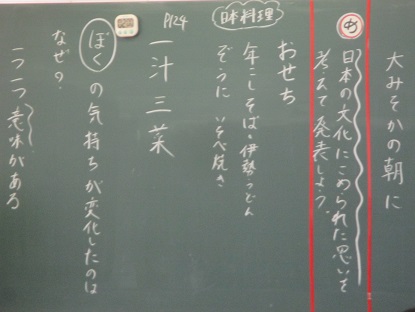 大みそかの朝に
め
日本の文化にこめられた思いを
考えて発表しよう。
日本料理
おせち
年こしそば・伊勢うどん
ぞうに いそべ焼き
P124
一汁三菜
ぼくの気持ちが変化したのは
なぜ？
一つ一つ意味がある